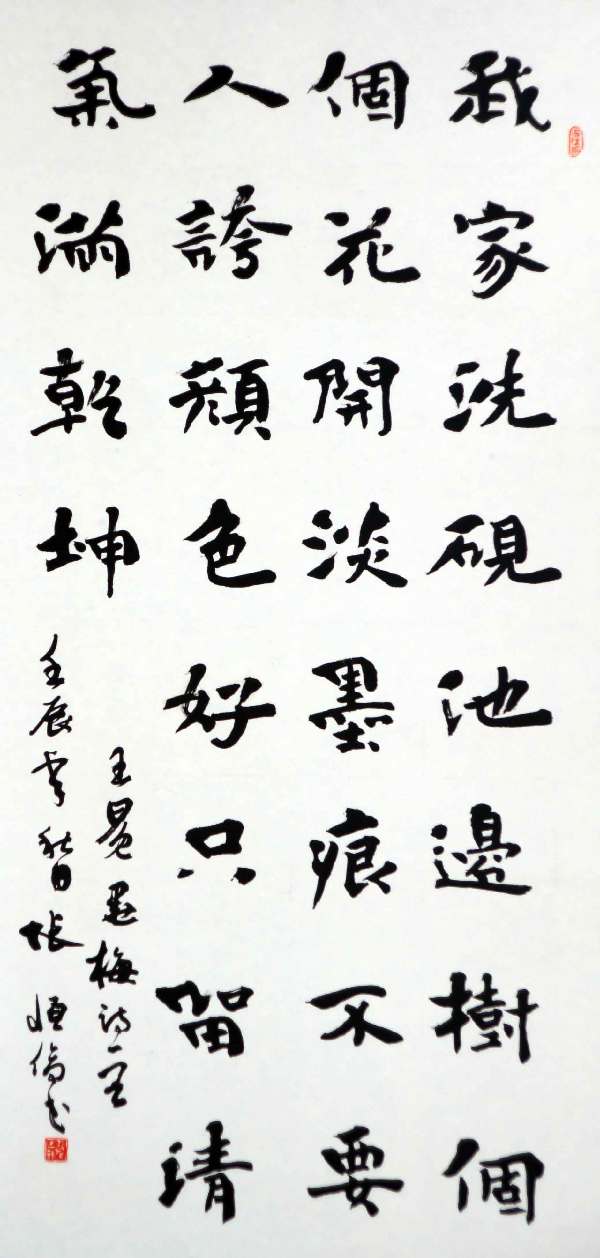 我家洗硯池邊樹個
個花開淡墨痕不要
人誇顏色好只留清
氣滿乾坤
王冕墨梅诗一首
壬辰年秋日張恒书